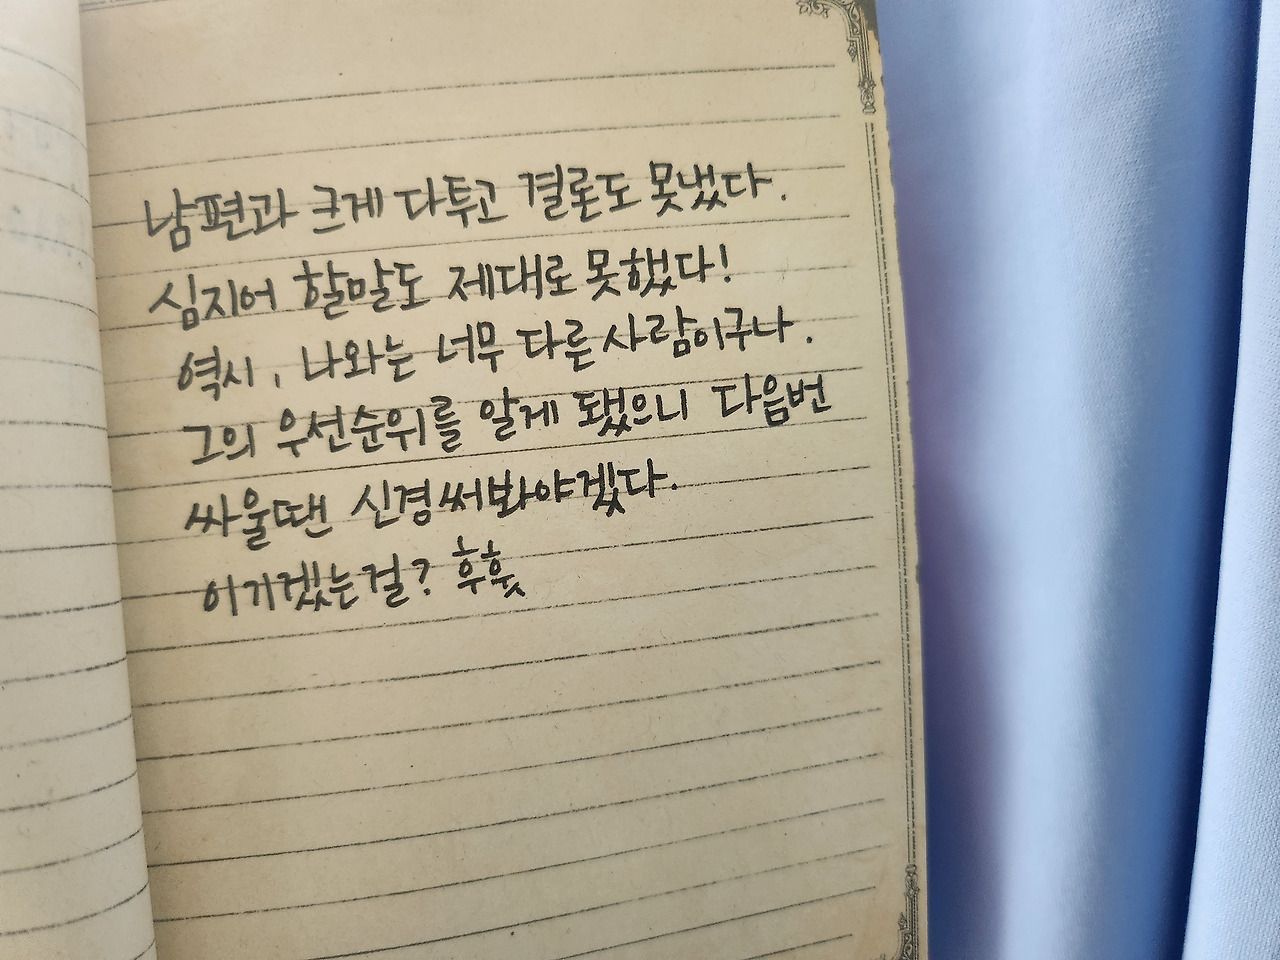 남편과 크게 다투고 결론도 못냈다.
심지어 할말도 제대로 못했다!
역시, 나와는 너무 다른 사람이구나.
그의 우선순위를 알게 됐으니 다음번
싸울땐 신경써봐야겠다.
이기겠는걸? 후훗